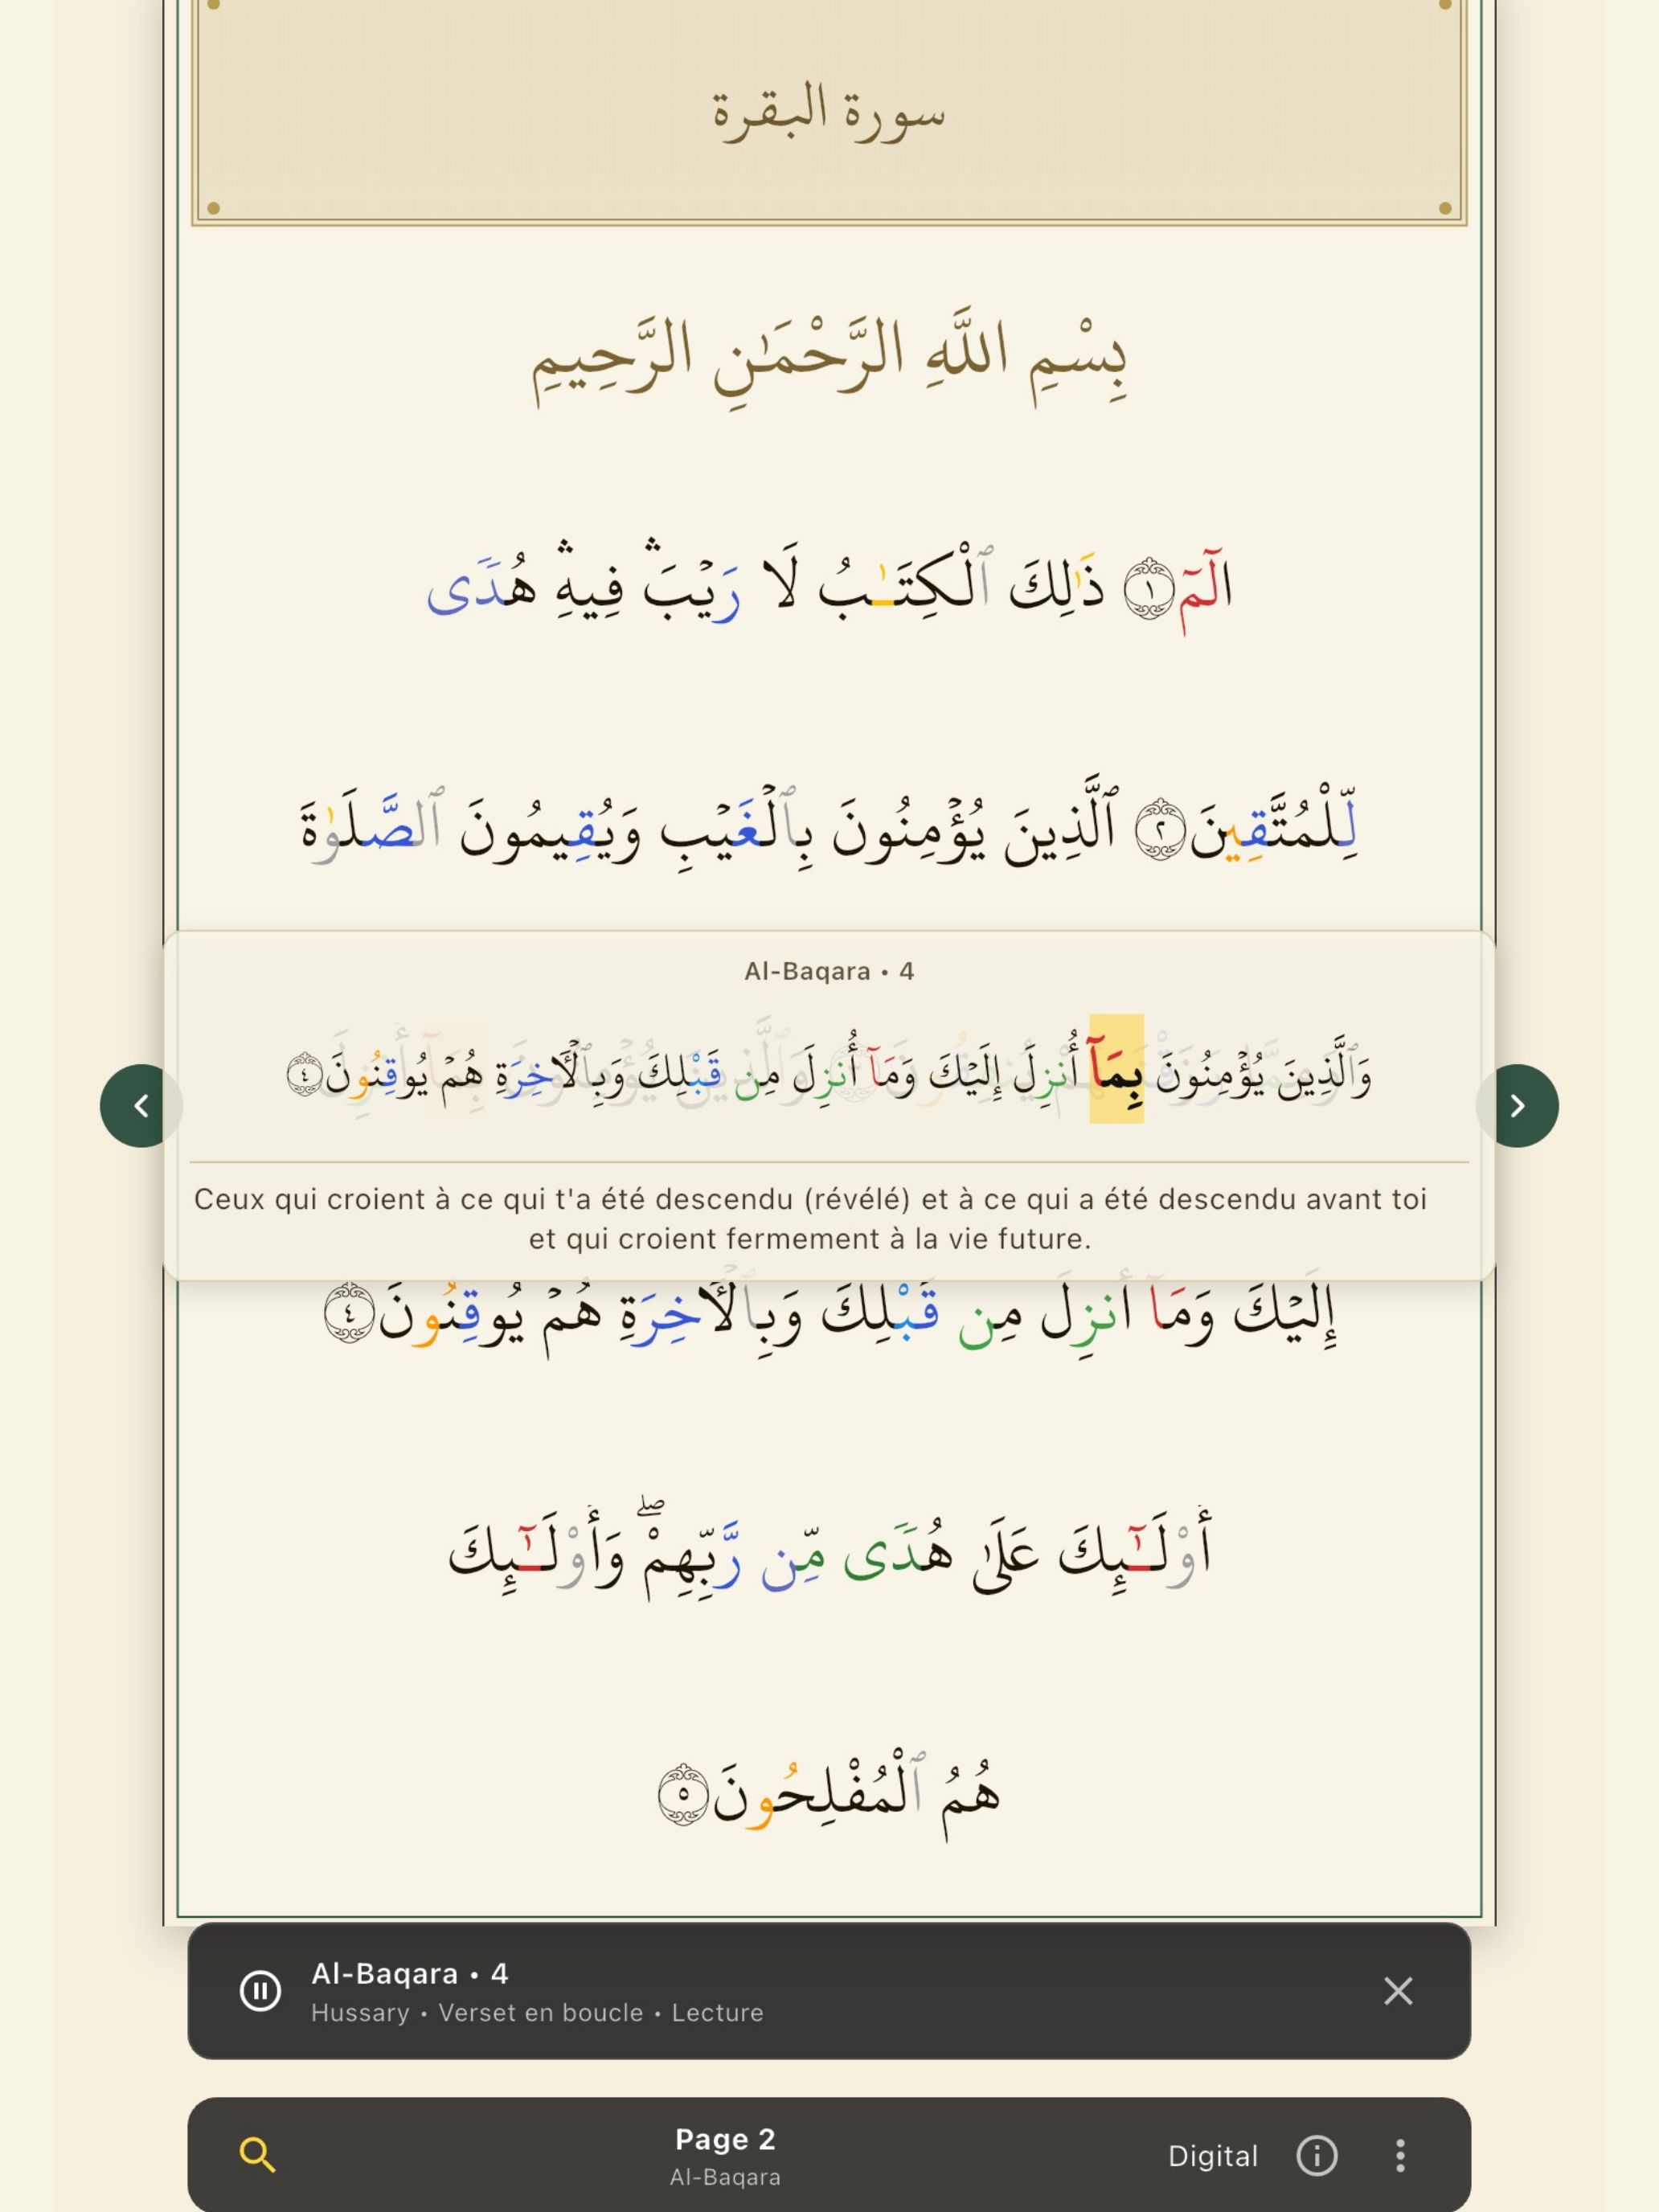 سورة البقرة
بِسْمِ اللَّهِ الرَّحْمَٰنِ الرَّحِيمِ
الٓمٓ ۝١ ذَٰلِكَ ٱلْكِتَـٰبُ لَا رَيْبَ ۛ فِيهِ ۛ هُدًى
لِّلْمُتَّقِينَ ۝٢ ٱلَّذِينَ يُؤْمِنُونَ بِٱلْغَيْبِ وَيُقِيمُونَ ٱلصَّلَوٰةَ
Al-Baqara • 4
وَٱلَّذِينَ يُؤْمِنُونَ بِمَآ أُنزِلَ إِلَيْكَ وَمَآ أُنزِلَ مِن قَبْلِكَ وَبِٱلْـَٔاخِرَةِ هُمْ يُوقِنُونَ ۝٤
Ceux qui croient à ce qui t'a été descendu (révélé) et à ce qui a été descendu avant toi
et qui croient fermement à la vie future.
إِلَيْكَ وَمَآ أُنزِلَ مِن قَبْلِكَ وَبِٱلْـَٔاخِرَةِ هُمْ يُوقِنُونَ ۝٤
أُو۟لَـٰٓئِكَ عَلَىٰ هُدًى مِّن رَّبِّهِمْ ۖ وَأُو۟لَـٰٓئِكَ
هُمُ ٱلْمُفْلِحُونَ ۝٥
Al-Baqara • 4
Hussary • Verset en boucle • Lecture
Page 2
Al-Baqara
Digital